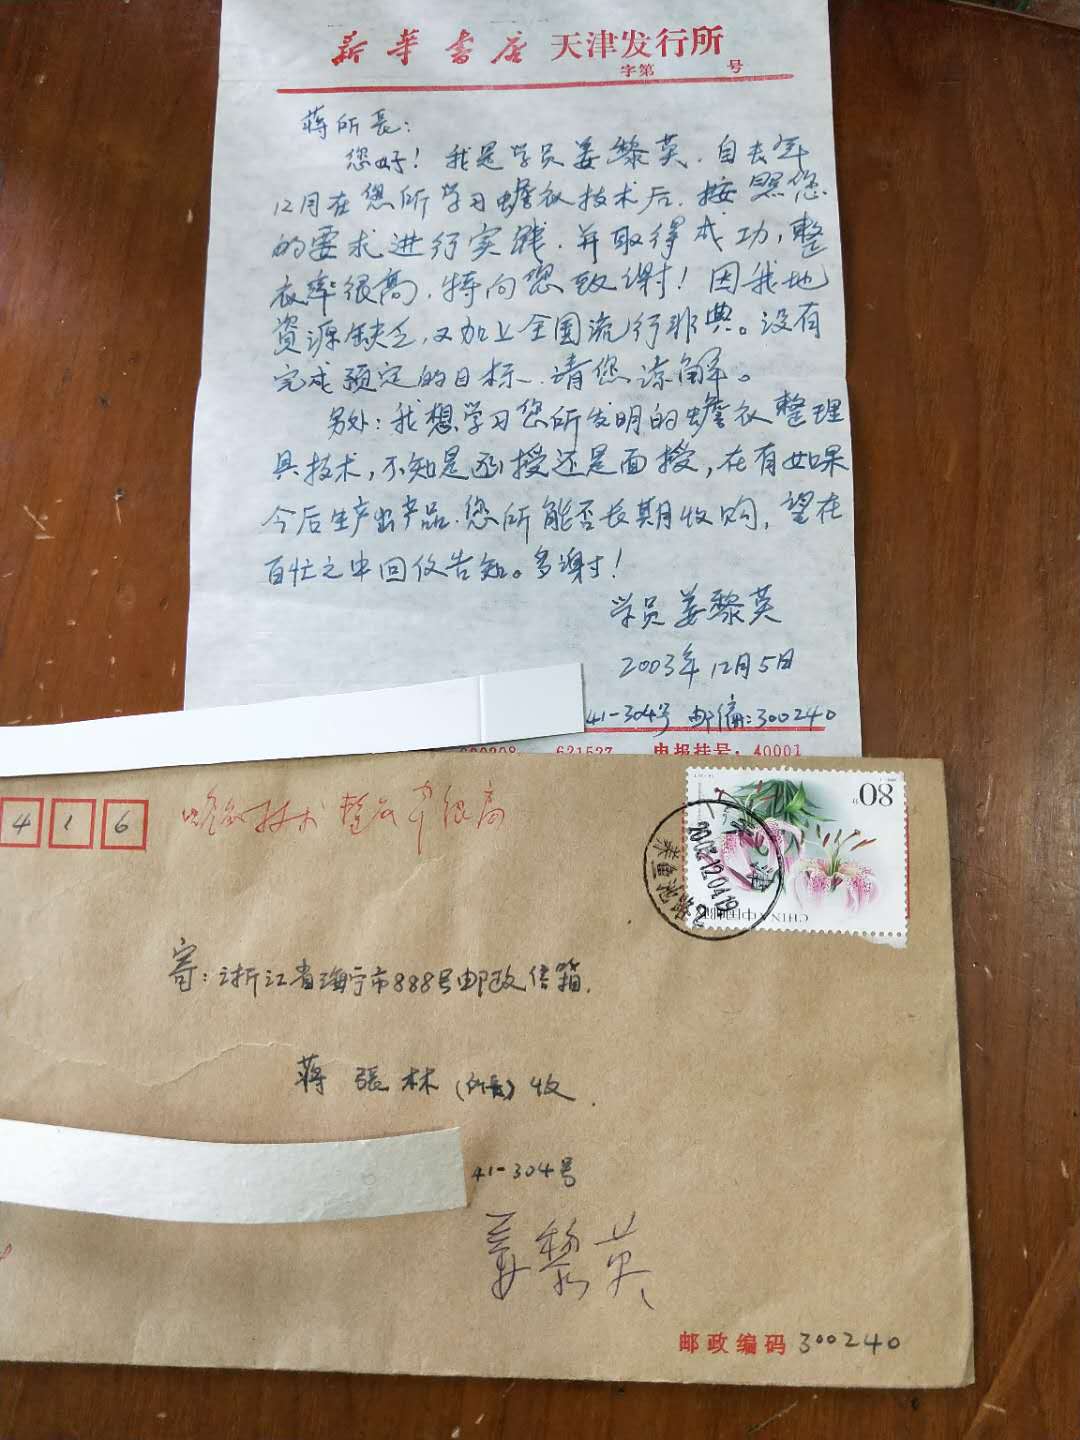 新华书店 天津发行所
字第 号
蒋所長：
您好！我是学员姜黎英，自去年
12月在您所学习蟾衣技术后，按照您
的要求进行实践，并取得成功，整
衣率很高，特向您致谢！因我地
资源缺乏，又加上全国流行非典。没有
完成预定的目标，请您谅解。
另外：我想学习您所发明的蟾衣整理
具技术，不知是函授还是面授，在有如果
今后生产出产品，您所能否长期收购，望在
百忙之中回仪告知。多谢！
学员 姜黎英
2003年12月5日
41-304号 邮编：300240
621527 电报挂号：40001
416
蟾衣技术 整衣率很高
80分
CHINA 中国邮政
天津
2003.12.04.19
寄：浙江省海宁市888号邮政信箱.
蒋張林（所長）收.
41-304号
姜黎英
邮政编码 300240